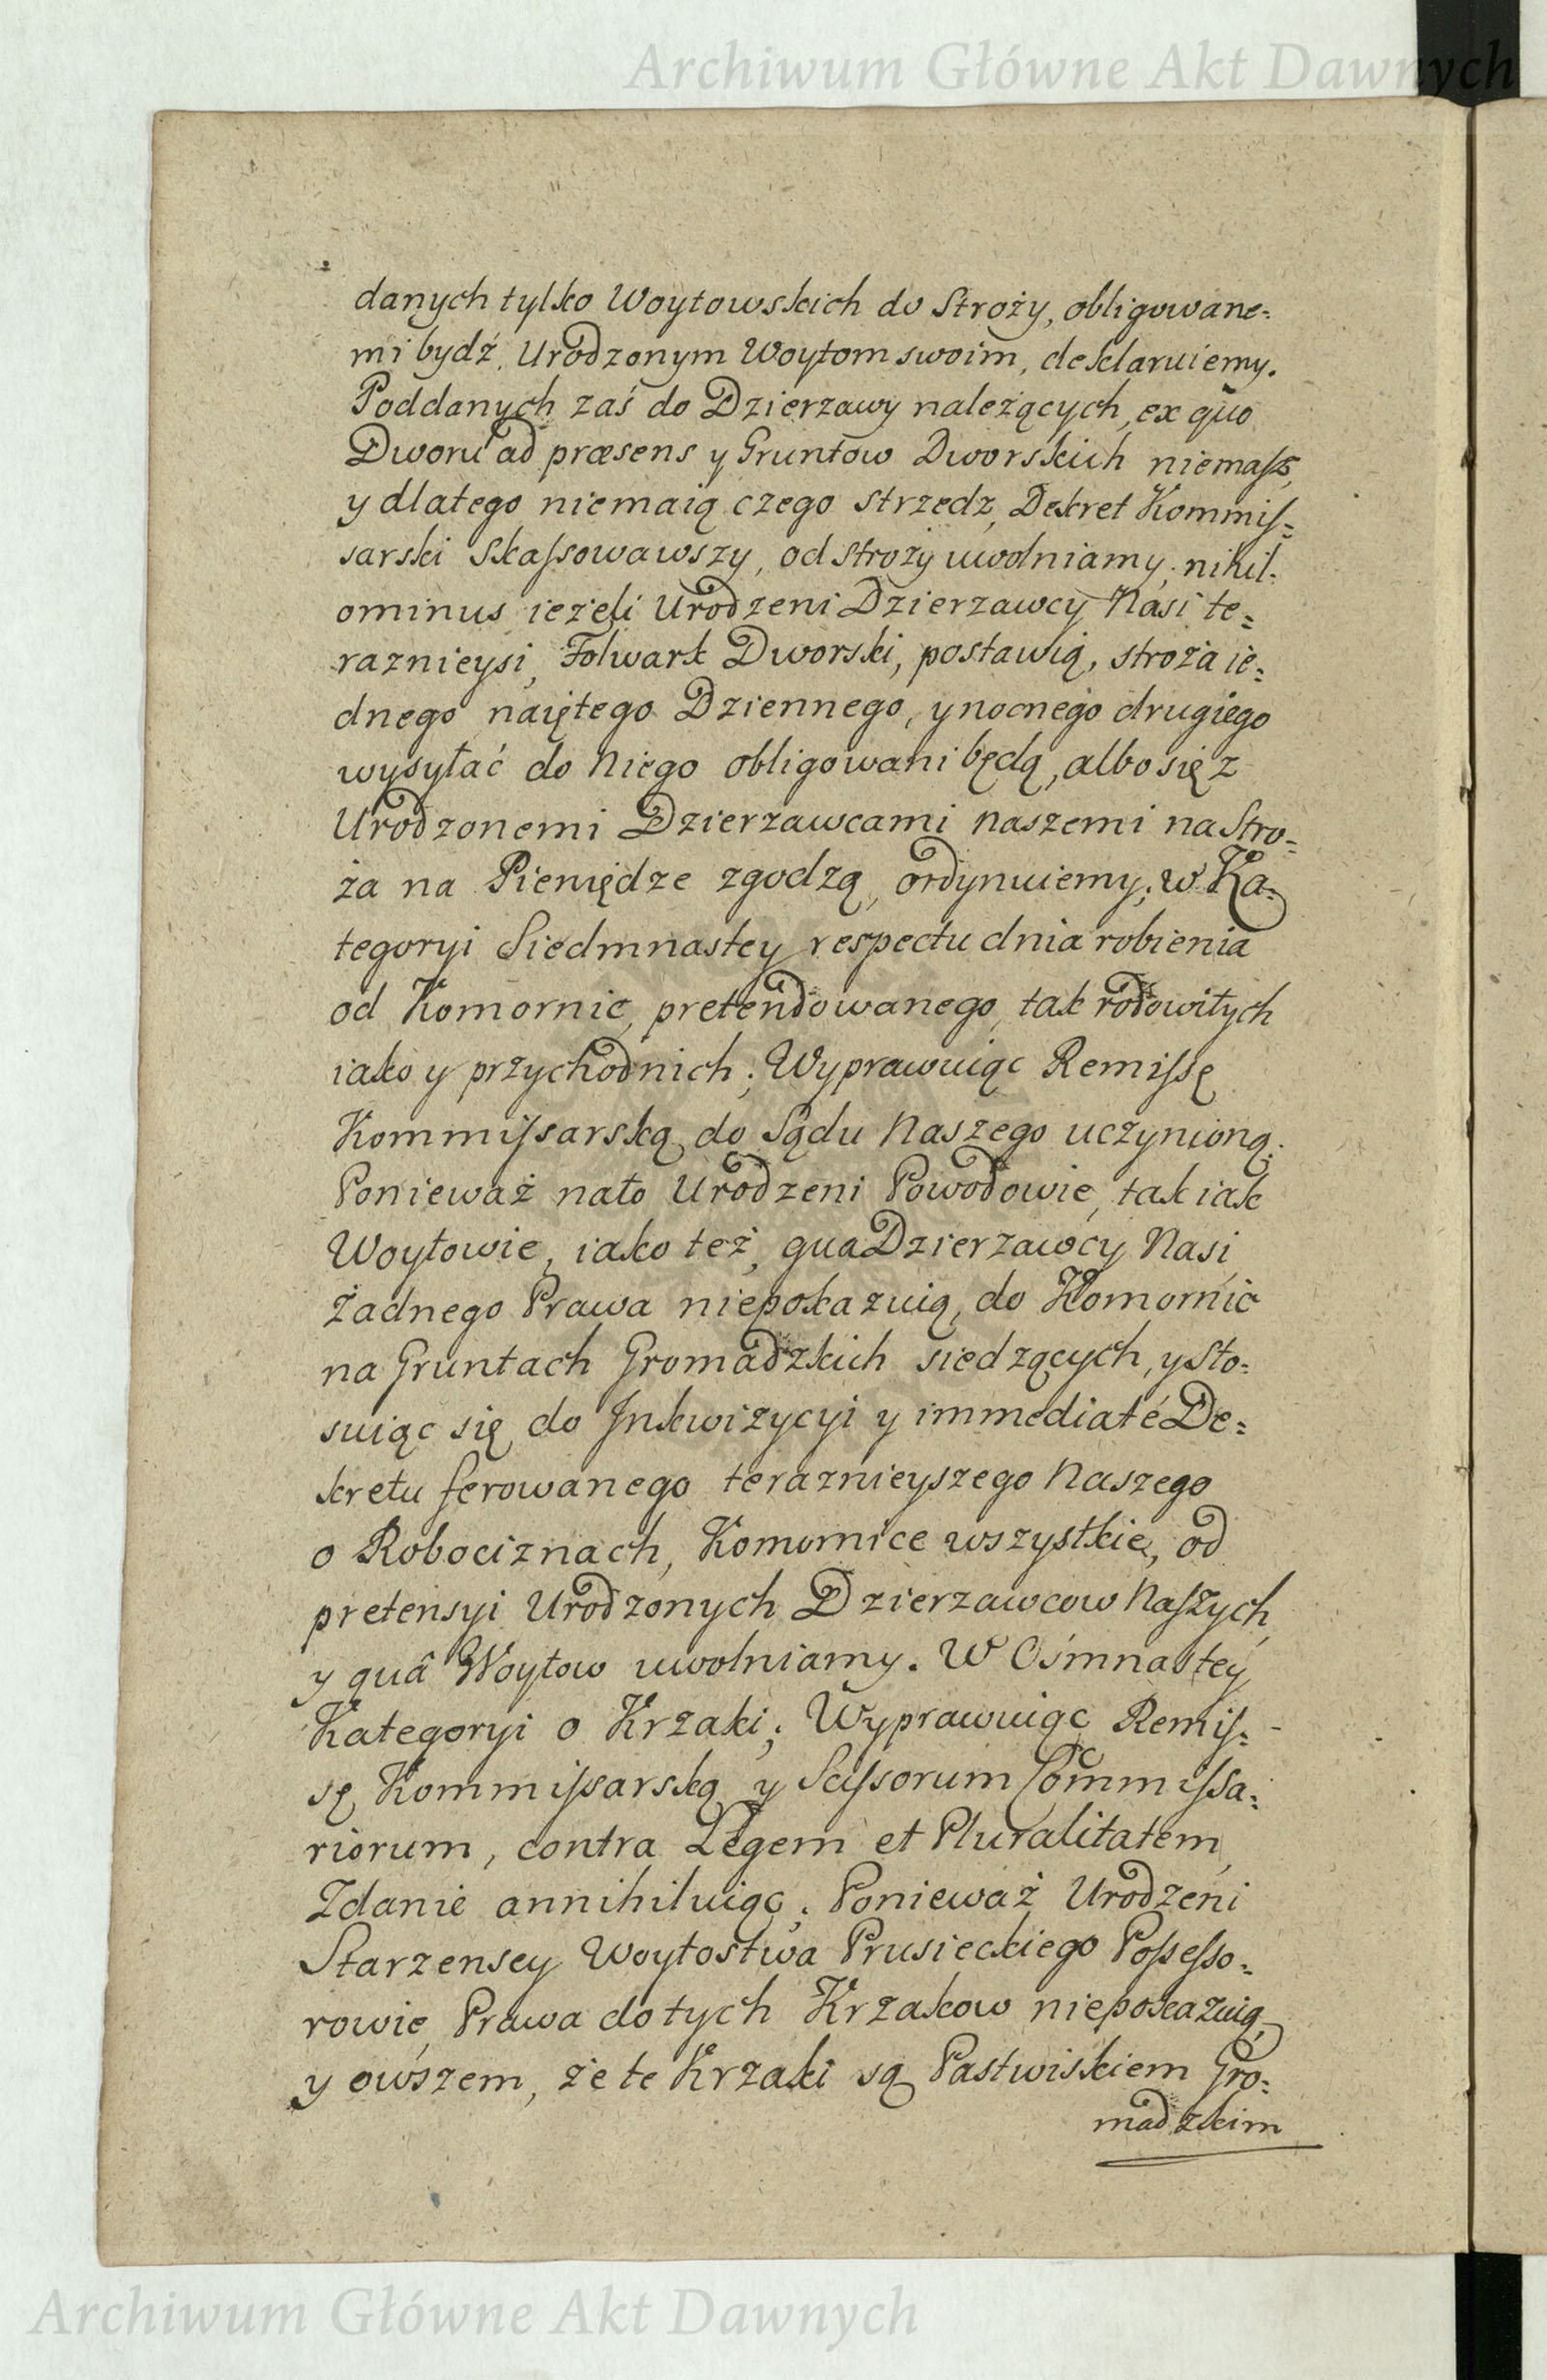 Archiwum Główne Akt Dawnych
danych tylko Woytowskich do Stroży, obligowane=
mi bydź, Urodzonym Woytom swoim, deklaruiemy.
Poddanych zaś do Dzierzawy należących, ex quo
Dworu ad præsens y Gruntow Dworskich niemaſz,
y dlatego niemaią czego strzedz, Dekret Kommiſ=
sarski Skaſsowawszy, od stroży uwolniamy; nihil=
ominus ieżeli Urodzeni Dzierzawcy Nasi te=
raznieysi, Folwark Dworski, postawią, stroża ie=
dnego naiętego Dziennego, y nocnego drugiego
wysyłać do niego obligowani będą, albo się z
Urodzonemi Dzierzawcami naszemi na Stro=
ża na Pieniędze zgodzą, ordynuiemy; w Ka=
tegoryi Siedmnastey respectu dnia robienia
od Komornic, pretendowanego, tak rodowitych
iako y przychodnich; Wyprawuiąc Remiſsę
Kommiſsarską do Sądu Naszego uczynioną;
Ponieważ nato Urodzeni Powodowie, tak iak
Woytowie, iako też, qua Dzierzawcy Nasi
żadnego Prawa niepokazuią, do Komornic
na Gruntach Gromadzkich siedzących, y Sto=
suiąc się do Inkwizycyi y immediaté De=
kretu ferowanego teraznieyszego Naszego
o Robociznach, Komornice wszystkie, od
pretensyi Urodzonych Dzierzawcow Naſzych,
y quâ Woytow uwolniamy. W Ośmnastey
Kategoryi o Krzaki; Wyprawuiąc Remiſ=
sę Kommiſsarską y Sciſsorum Commiſsa=
riorum, contra Legem et Pluralitatem,
Zdanie annihiluiąc; Ponieważ Urodzeni
Starzenscy Woytostwa Prusieckiego Poſseſso=
rowie, Prawa do tych Krzakow niepokazuią,
y owszem, że te Krzaki są Pastwiskiem Gro=
madzkim
Archiwum Główne Akt Dawnych